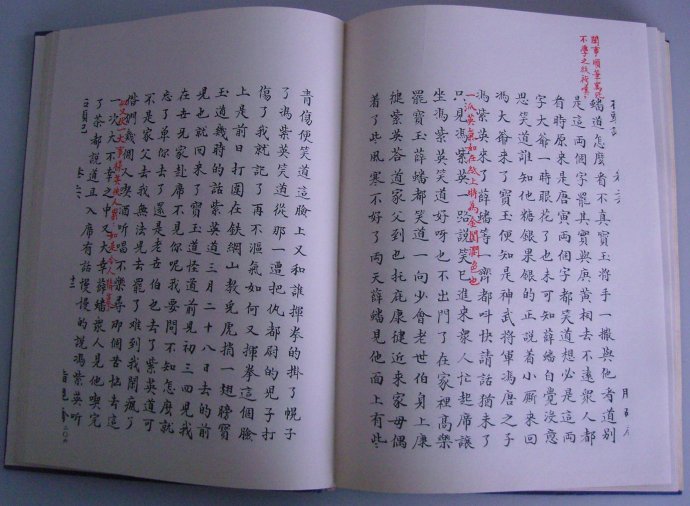 閒事順筆罵死
不學之紈袴嘆
蟠道怎麼看不真寶玉將手一撒與他看道别
是這兩個字罷其實與庚黃相去不遠衆人都
看時原來是唐寅兩個字都笑道想必是這兩
字大爺一時眼花了也未可知薛蟠自覺沒意
思笑道誰知他糖銀果銀的正說着小厮來回
馮大爺來了寶玉便知是神武將軍馮唐之子
馮紫英來了薛蟠等一齊都叫快請話猶未了
只見馮紫英一路說笑已進來衆人忙起席讓
一派英氣如在紙上特為金閨潤色也
坐馮紫英笑道好呀也不出門了在家裡高樂
罷寶玉薛蟠都笑道一向少會老世伯身上康
健紫英答道家父到也托庇康健近來家母偶
着了些風寒不好了兩天薛蟠見他面上有些
青傷便笑道這臉上又和誰揮拳的掛了幌子
了馮紫英笑道從那一遭把仇都尉的兒子打
傷了我就記了再不漚氣如何又揮拳這個臉
上是前日打圍在鉄網山教兎虎捎一翅膀寶
玉道幾時的話紫英道三月二十八日去的前
兒也就回來了寶玉道怪道前兒初三四兒我
在兄家赴席不見你呢我要問不知怎麼就
忘了單你去了還是老世伯也去了紫英道可
不是家父去我無法兒去罷了難到我閒瘋了
偺們幾個人吃酒聽唱不樂尋那個苦惱去這
一次大不幸之中又大幸薛蟠衆人見他吃完
了茶都說道且入席有話慢慢的說馮紫英聽